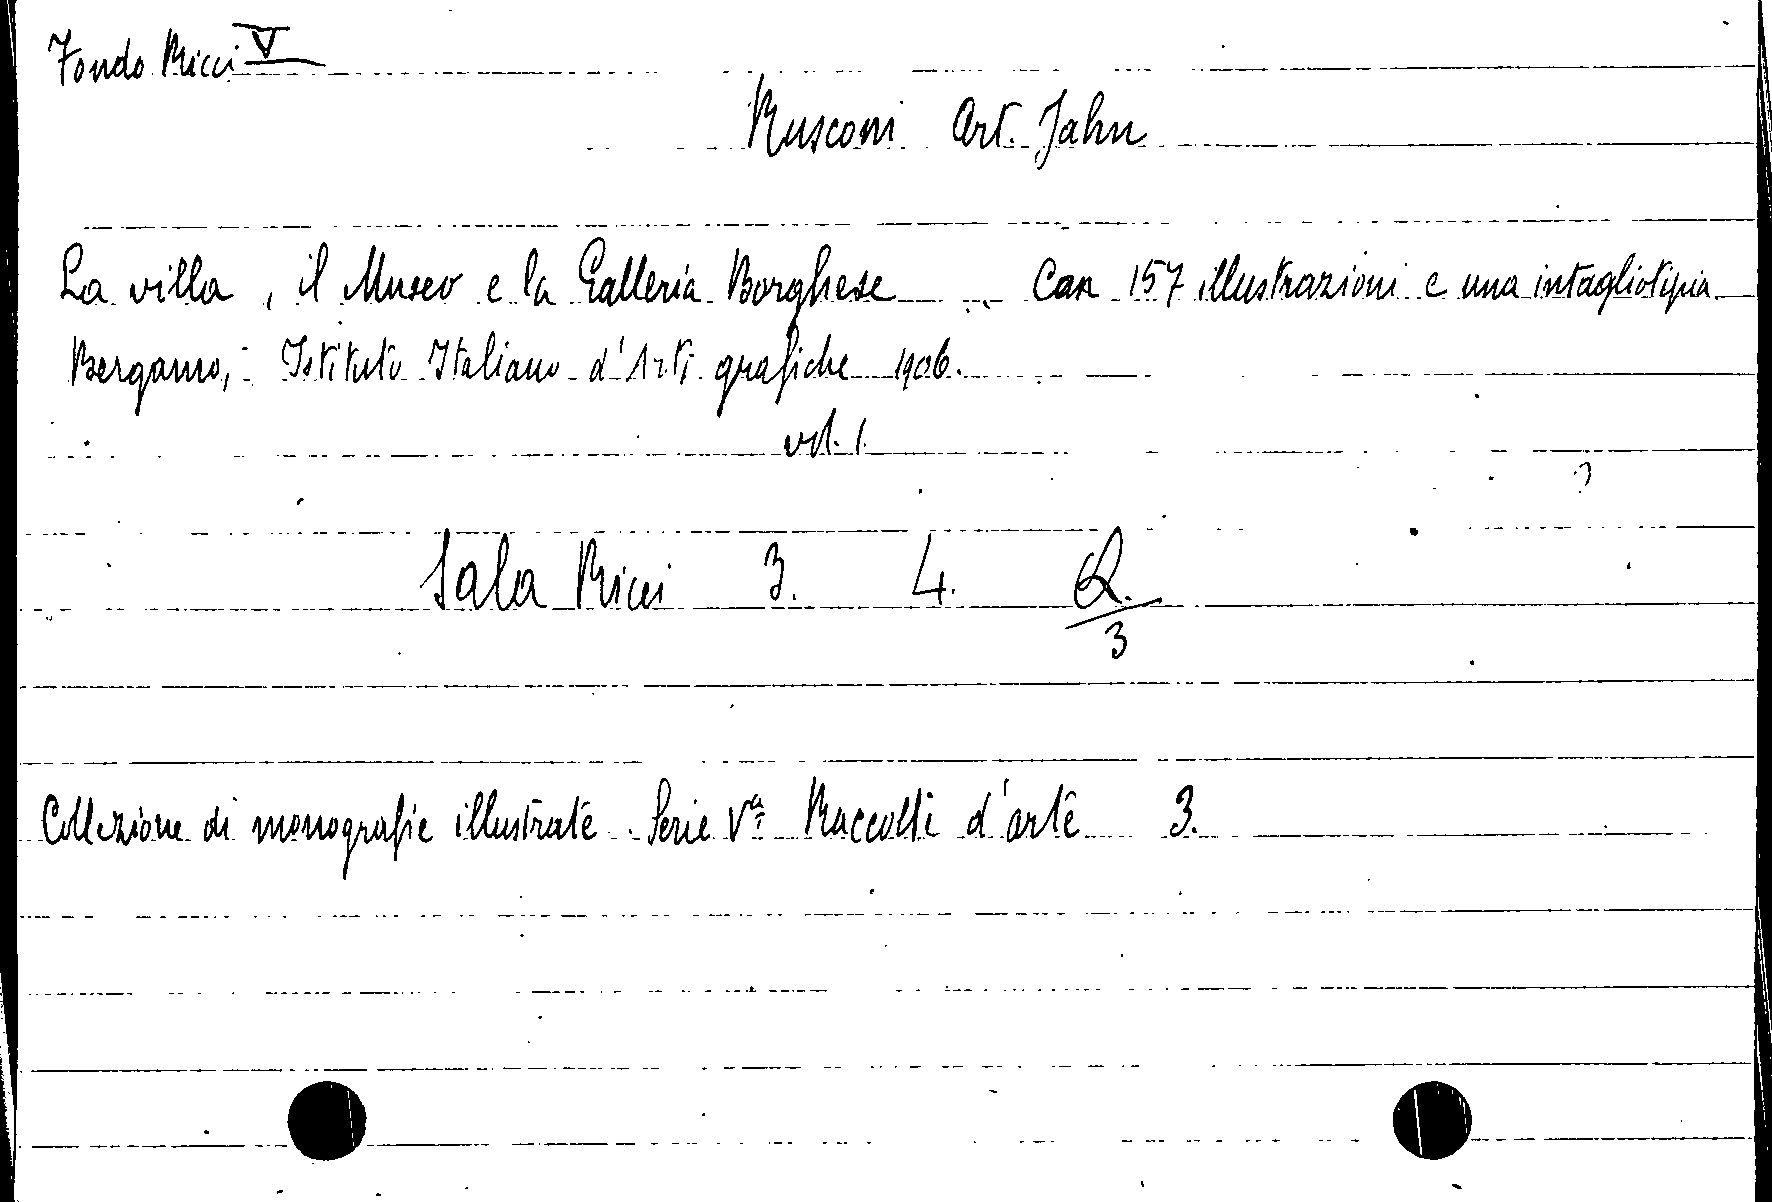 Fondo Ricci V
Rusconi Art. Jahn
La villa, il Museo e la Galleria Borghese .. Con 157 illustrazioni e una intagliotipia
Bergamo, - Istituto Italiano d'Arti grafiche 1906.
vol. 1.
Sala Ricci 3. 4. Q.
3
Collezione di monografie illustrate. Serie Vª Raccolti d'arte 3.